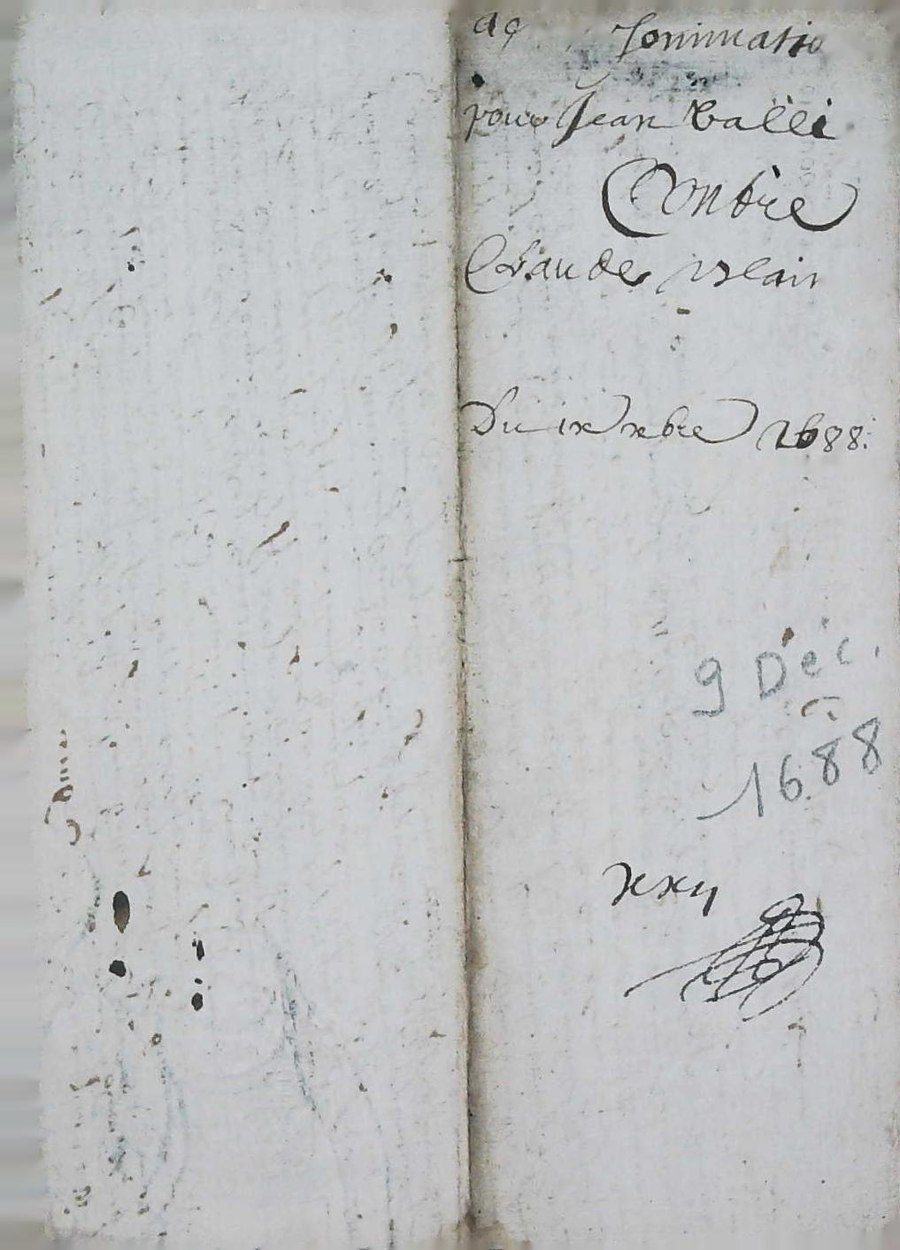 Sommatio
pour Jean Vallé
Contre
Claude
Du ix xbre 1688.
9 Déc.
1688